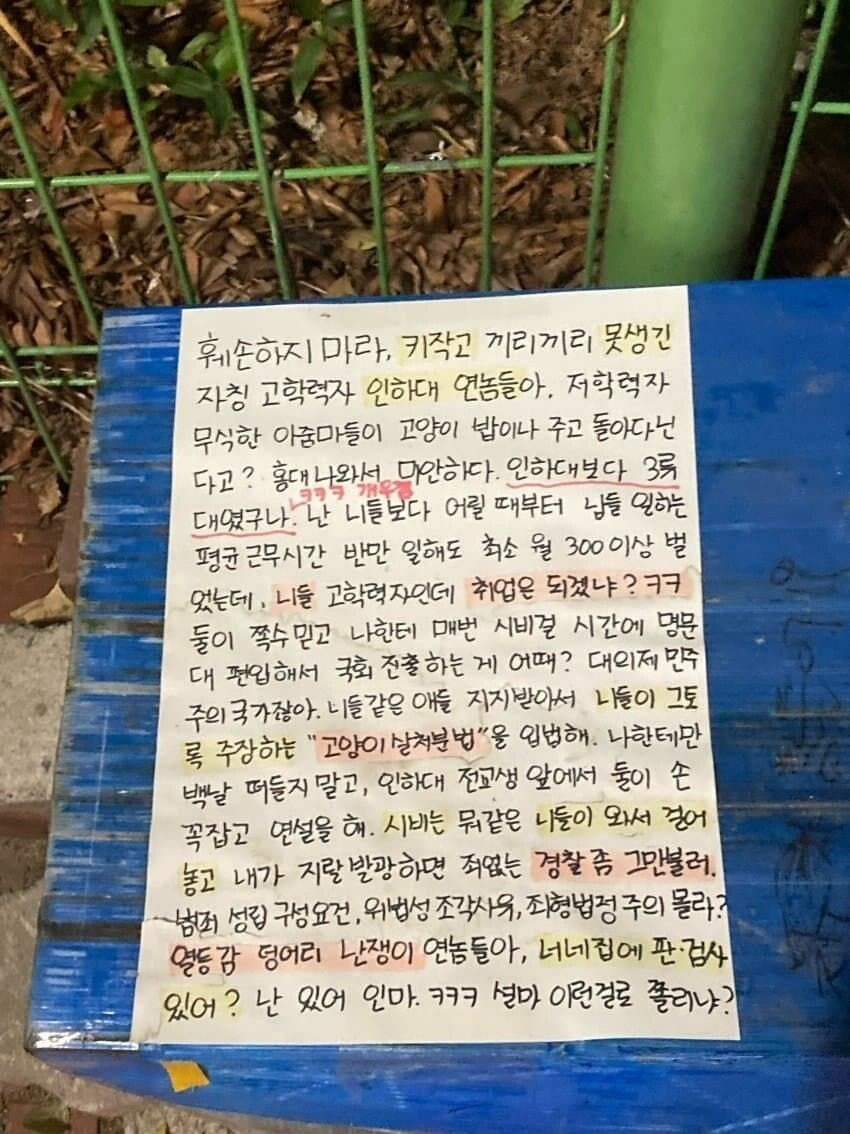 훼손하지 마라, 키작고 끼리끼리 못생긴
자칭 고학력자 인하대 연놈들아. 저학력자
무식한 아줌마들이 고양이 밥이나 주고 돌아다닌
다고? 홍대 나와서 미안하다. 인하대보다 3류
ㅋㅋㅋ 개웃겸
대였구나. 난 니들보다 어릴 때부터 닙들 일하는
평균 근무시간 반만 일해도 최소 월 300이상 벌
었는데, 니들 고학력자인데 취업은 되겠냐? ㅋㅋ
둘이 쪽수 믿고 나한테 매번 시비걸 시간에 명문
대 편입해서 국회 진출하는 게 어때? 대의제 민주
주의 국가잖아. 니들같은 애들 지지받아서 니들이 그토
록 주장하는 "고양이 살처분법"을 입법해. 나한테만
백날 떠들지 말고, 인하대 전교생 앞에서 둘이 손
꼭잡고 연설을 해. 시비는 뭐같은 니들이 와서 걸어
놓고 내가 지랄발광하면 죄없는 경찰 좀 그만불러.
범죄 성립 구성요건, 위법성 조각사유, 죄형법정주의 몰라?
열등감 덩어리 난쟁이 연놈들아, 너네집에 판·검사
있어? 난 있어 인마. ㅋㅋㅋ 설마 이런걸로 쫄리냐?